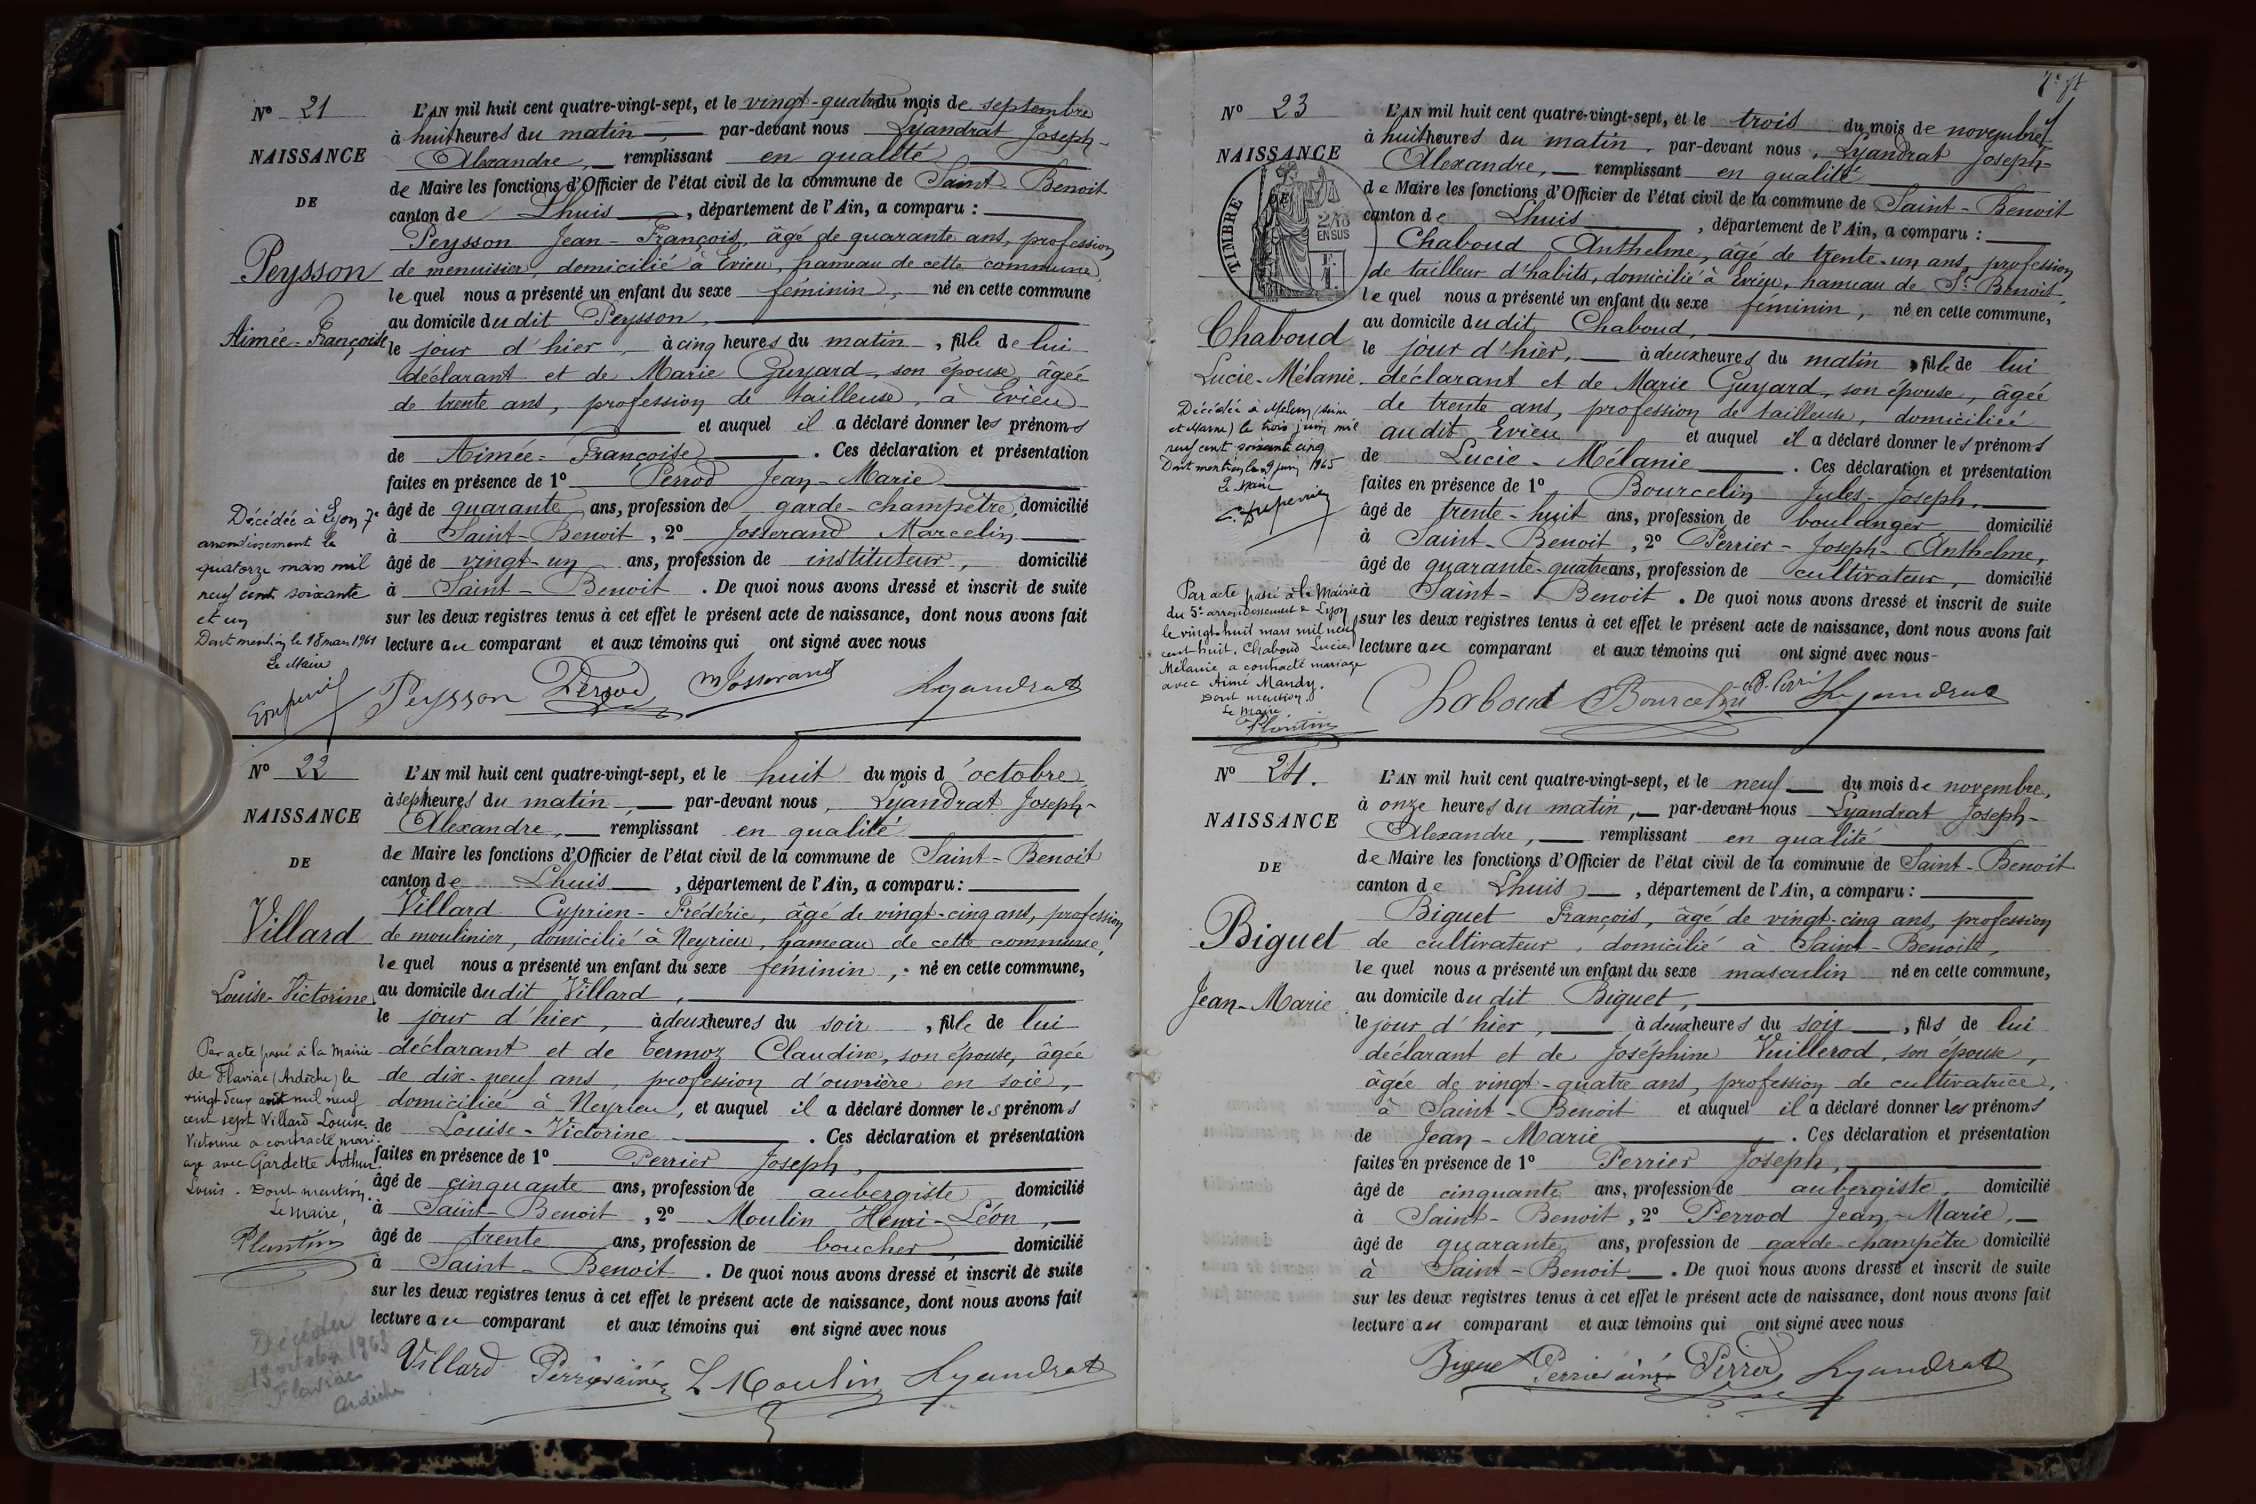 Nº 21
NAISSANCE
DE
Peysson
Aimée-Françoise
L'AN mil huit cent quatre-vingt-sept, et le vingt-quatre du mois de septembre
à huit heures du matin, par-devant nous Lyandrat Joseph-
Alexandre, remplissant en qualité
de Maire les fonctions d'Officier de l'état civil de la commune de Saint-Benoit
canton de Lhuis, département de l'Ain, a comparu :
Peysson Jean-François, âgé de quarante ans, profession
de menuisier, domicilié à Evieu, hameau de cette commune,
lequel nous a présenté un enfant du sexe féminin, né en cette commune
au domicile dudit Peysson,
le jour d'hier, à cinq heures du matin, fille de lui
déclarant et de Marie Guyard, son épouse, âgée
de trente ans, profession de tailleuse, à Evieu
et auquel il a déclaré donner les prénoms
de Aimée-Françoise. Ces déclaration et présentation
faites en présence de 1º Perrod Jean-Marie
âgé de quarante ans, profession de garde-champêtre, domicilié
à Saint-Benoit, 2º Josserand Marcelin
âgé de vingt-un ans, profession de instituteur, domicilié
à Saint-Benoit. De quoi nous avons dressé et inscrit de suite
sur les deux registres tenus à cet effet le présent acte de naissance, dont nous avons fait
lecture au comparant et aux témoins qui ont signé avec nous
Peysson Perrod M Josserand Lyandrat
Décédée à Lyon 7e
arrondissement le
quatorze mars mil
neuf cent soixante
et un
Dont mention le 18 mars 1961
Le Maire
Nº 22
NAISSANCE
DE
Villard
Louise-Victorine
L'AN mil huit cent quatre-vingt-sept, et le huit du mois d'octobre,
à sept heures du matin, par-devant nous, Lyandrat Joseph-
Alexandre, remplissant en qualité
de Maire les fonctions d'Officier de l'état civil de la commune de Saint-Benoit
canton de Lhuis, département de l'Ain, a comparu :
Villard Cyprien-Frédéric, âgé de vingt-cinq ans, profession
de moulinier, domicilié à Neyrieu, hameau de cette commune,
lequel nous a présenté un enfant du sexe féminin, né en cette commune,
au domicile dudit Villard,
le jour d'hier, à deux heures du soir, fille de lui
déclarant et de Termoz Claudine, son épouse, âgée
de dix-neuf ans, profession d'ouvrière en soie,
domiciliée à Neyrieu, et auquel il a déclaré donner les prénoms
de Louise-Victorine. Ces déclaration et présentation
faites en présence de 1º Perrier Joseph,
âgé de cinquante ans, profession de aubergiste domicilié
à Saint-Benoit, 2º Moulin Henri-Léon,
âgé de trente ans, profession de boucher, domicilié
à Saint-Benoit. De quoi nous avons dressé et inscrit de suite
sur les deux registres tenus à cet effet le présent acte de naissance, dont nous avons fait
lecture au comparant et aux témoins qui ont signé avec nous
Villard Perrier ainé L Moulin Lyandrat
Par acte passé à la Mairie
de Flaviac (Ardèche) le
vingt-deux août mil neuf
cent sept Villard Louise-
Victorine a contracté mari-
age avec Gardette Arthur
Louis. Dont mention.
Le Maire,
Plantin
Décédée
19 octobre 1963
Flaviac
Ardèche
Nº 23
NAISSANCE
DE
TIMBRE
2/10
EN SUS
Chaboud
Lucie-Mélanie.
L'AN mil huit cent quatre-vingt-sept, et le trois du mois de novembre
à huit heures du matin, par-devant nous, Lyandrat Joseph-
Alexandre, remplissant en qualité
de Maire les fonctions d'Officier de l'état civil de la commune de Saint-Benoit
canton de Lhuis, département de l'Ain, a comparu :
Chaboud Anthelme, âgé de trente-un ans, profession
de tailleur d'habits, domicilié à Evieu, hameau de St Benoit,
lequel nous a présenté un enfant du sexe féminin, né en cette commune,
au domicile dudit Chaboud,
le jour d'hier, à deux heures du matin, fille de lui
déclarant et de Marie Guyard, son épouse, âgée
de trente ans, profession de tailleuse, domiciliée
audit Evieu et auquel il a déclaré donner les prénoms
de Lucie-Mélanie. Ces déclaration et présentation
faites en présence de 1º Bourcelin Jules-Joseph,
âgé de trente-huit ans, profession de boulanger domicilié
à Saint-Benoit, 2º Perrier-Joseph-Anthelme,
âgé de quarante-quatre ans, profession de cultivateur, domicilié
à Saint-Benoit. De quoi nous avons dressé et inscrit de suite
sur les deux registres tenus à cet effet le présent acte de naissance, dont nous avons fait
lecture au comparant et aux témoins qui ont signé avec nous-
Chaboud Bourcelin Lyandrat
Décédée à Melun (Seine
et Marne) le trois juin mil
neuf cent soixante cinq
Dont mention le 9 juin 1965
Le Maire
Par acte passé à la Mairie
du 5e arrondissement de Lyon
le vingt-huit mars mil neuf
cent huit, Chaboud Lucie
Mélanie a contracté mariage
avec Aimé Mandy.
Dont mention
Le Maire
Plantin
Nº 24.
NAISSANCE
DE
Biguet
Jean-Marie
L'AN mil huit cent quatre-vingt-sept, et le neuf du mois de novembre,
à onze heures du matin, par-devant nous Lyandrat Joseph-
Alexandre, remplissant en qualité
de Maire les fonctions d'Officier de l'état civil de la commune de Saint-Benoit
canton de Lhuis, département de l'Ain, a comparu :
Biguet François, âgé de vingt-cinq ans, profession
de cultivateur, domicilié à Saint-Benoit,
lequel nous a présenté un enfant du sexe masculin né en cette commune,
au domicile dudit Biguet,
le jour d'hier, à deux heures du soir, fils de lui
déclarant et de Joséphine Vuillerod, son épouse,
âgée de vingt-quatre ans, profession de cultivatrice,
à Saint-Benoit et auquel il a déclaré donner les prénoms
de Jean-Marie. Ces déclaration et présentation
faites en présence de 1º Perrier Joseph,
âgé de cinquante ans, profession de aubergiste, domicilié
à Saint-Benoit, 2º Perrod Jean-Marie,
âgé de quarante ans, profession de garde-champêtre domicilié
à Saint-Benoit. De quoi nous avons dressé et inscrit de suite
sur les deux registres tenus à cet effet le présent acte de naissance, dont nous avons fait
lecture au comparant et aux témoins qui ont signé avec nous
Biguet Perrier ainé Perrod Lyandrat